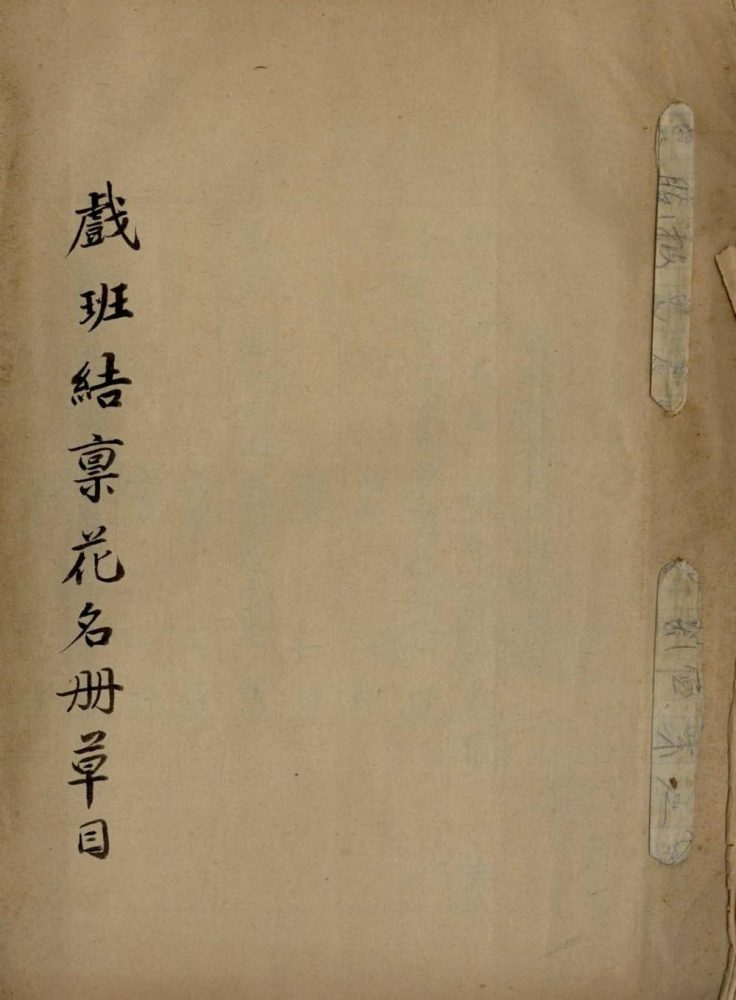 戲班結稟花名册草目